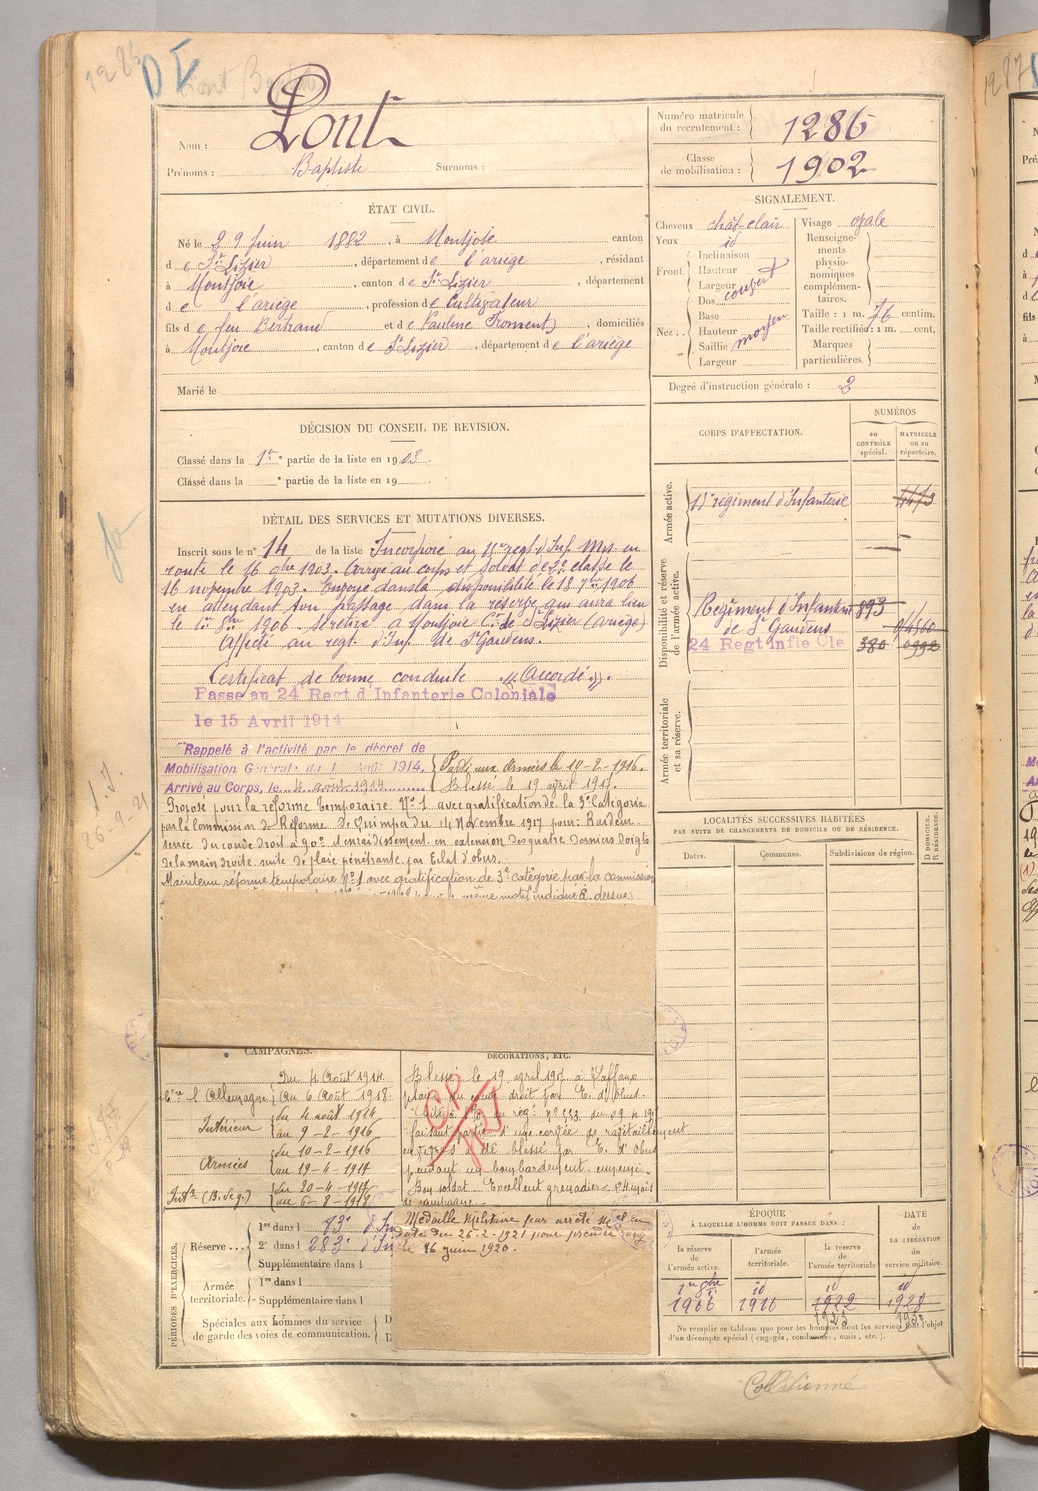 1286 D
Nom : Pont
Prénoms : Baptiste Surnoms :
Numéro matricule du recrutement : 1286
Classe de mobilisation : 1902
ÉTAT CIVIL.
Né le 29 Juin 1882, à Montjoie canton
de St Lizier, département de l'ariège, résidant
à Montjoie, canton de St Lizier, département
de l'ariège, profession de Cultivateur
fils de feu Bertrand et de Pauline Froment, domiciliés
à Montjoie, canton de St Lizier, département de l'ariège
Marié le
SIGNALEMENT.
Cheveux chât clair
Yeux id
Front Inclinaison Hauteur Largeur couvert
Nez Dos Base Hauteur Saillie Largeur moyen
Visage ovale
Renseignements physionomiques complémentaires.
Taille : 1 m. 76 centim.
Taille rectifiée : 1 m. cent.
Marques particulières.
Degré d'instruction générale : 2
DÉCISION DU CONSEIL DE REVISION.
Classé dans la 1re partie de la liste en 1903.
Classé dans la e partie de la liste en 19
CORPS D'AFFECTATION.
NUMÉROS
au CONTRÔLE spécial.
MATRICULE ou au répertoire.
Armée active.
11e régiment d'Infanterie
Disponibilité et réserve de l'armée active.
Régiment d'Infanterie 893
de St Gaudens
24 Regt Infie Cle 380 0992
Armée territoriale et sa réserve.
DÉTAIL DES SERVICES ET MUTATIONS DIVERSES.
Inscrit sous le n° 14 de la liste Incorporé au 11e regt d'Inf. Mis en
route le 16 9bre 1903. Arrivé au corps et soldat de 2e classe le
16 novembre 1903. Envoyé dans la disponibilité le 18 7bre 1906
en attendant son passage dans la réserve qui aura lieu
le 1er 8bre 1906. Se retire à Montjoie Con de St Lizier (Ariège)
Affecté au regt d'Inf. de St Gaudens.
Certificat de bonne conduite "Accordé".
Passe au 24 Regt d Infanterie Coloniale
le 15 Avril 1914
Rappelé à l'activité par le décret de
Mobilisation Générale du 1 Août 1914.
Arrivé au Corps, le 4 août 1914
Parti aux armées le 10-2-1916.
Blessé le 19 avril 1917.
Proposé pour la réforme temporaire N° 1 avec gratification de la 3e Catégorie
par la Commission de Réforme de Quimper du 14 Novembre 1917 pour : Raideur
serrée du coude droit à 90° et enraidissement en extension des quatre derniers doigts
de la main droite suite de plaie pénétrante par Eclat d'obus.
Maintenu réforme temporaire N° 1 avec gratification de 3e catégorie par la commission
même motif indiqué ci-dessus
LOCALITÉS SUCCESSIVES HABITÉES
PAR SUITE DE CHANGEMENTS DE DOMICILE OU DE RÉSIDENCE.
Dates. Communes. Subdivisions de région. D DOMICILE. R RÉSIDENCE.
CAMPAGNES.
du 4 Août 1914
Cre l'Allemagne au 6 Août 1918
Intérieur du 4 août 1914
au 9-2-1916
Armées du 10-2-1916
au 19-4-1917
Intr (B. de g.) du 20-4-1917
au 6-8-1918
DÉCORATIONS, ETC.
Blessé le 19 avril 1917 à Laffaux
plaie du coude droit par E. d'obus.
faisant partie d'une corvée de ravitaillement
en vivres a été blessé par E. d'obus
pendant un bombardement ennemi.
Bon soldat. Excellent grenadier.
Médaille Militaire par arrêté
date du 26-2-1921 pour prendre rang
16 juin 1920.
PÉRIODES D'EXERCICES.
Réserve
1re dans l 83e d'In
2e dans l 283e d'In
Supplémentaire dans l
Armée territoriale.
1re dans l
Supplémentaire dans l
Spéciales aux hommes du service de garde des voies de communication.
ÉPOQUE
À LAQUELLE L'HOMME DOIT PASSER DANS :
la réserve de l'armée active.
l'armée territoriale.
la réserve de l'armée territoriale
DATE DE LA LIBÉRATION du service militaire.
1er 8bre 1906 id 1916 id 1922 id 1928
1923 1930
Ne remplir ce tableau que pour les hommes dont les services font l'objet
d'un décompte spécial (engagés, condamnés, omis, etc.).
Collationné